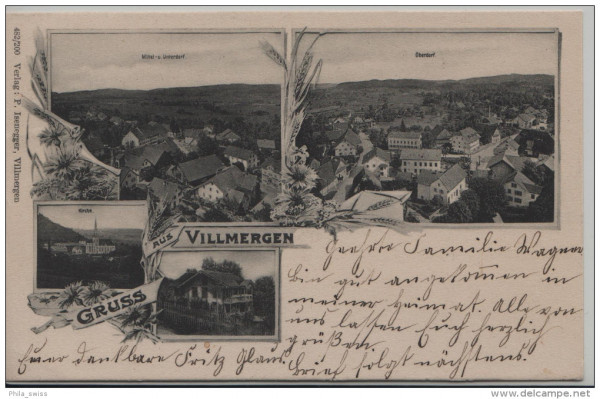 482/200 Verlag: F. Isenegger, Villmergen
Mittel- u. Unterdorf.
Oberdorf.
Kirche.
GRUSS AUS VILLMERGEN
Geehrte Familie Wagner
bin gut angekommen in
meiner Heimat. Alle von
uns lassen Euch herzlich
grüßen.
brief folgt nächstens.
Euer dankbare Fritz Glaus.
Phila_swiss
delcampe.net